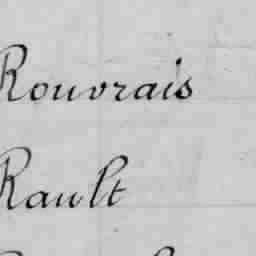 Rouvrais
Rault